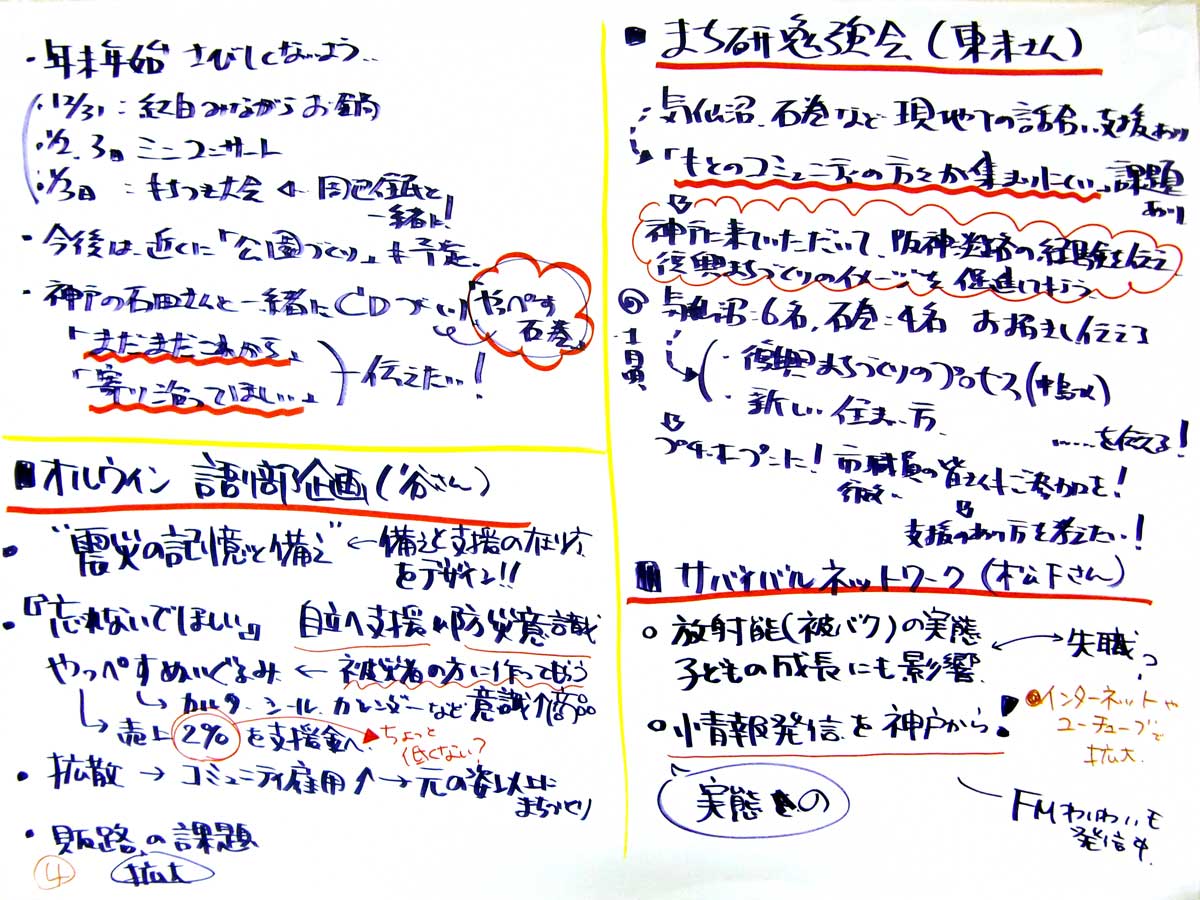 ・年末年始 さびしくないよう..
・12/31：紅白みながらお鍋
・1/2.3日 ミニコンサート
・1/3日：もちつき大会 ←
一緒に！
・今後は、近くに「公園づくり」も予定。
・神戸の石田さんと一緒にCDづくり
「やっぺす
石巻」
「まだまだこれから」
「寄り添ってほしい」
伝えたい！
■オルウィン 語り部企画(谷さん)
・"震災の記憶と備え" ← 備えと支援の在り方
をデザイン!!
・『忘れないでほしい』 自立へ支援 防災意識
やっぺすぬいぐるみ ← 被災者の方に作ってもらう
↳ カルタ シール カレンダーなど 意識 商品
↳ 売上2%を支援金へ
ちょっと
低くない？
・拡散 → コミュニティ雇用↑ → 元の姿以上に
まちづくり
・販路の課題
拡大
4
■まち研勉強会(東末さん)
気仙沼、石巻など現地での話合い支援あり
「もとのコミュニティの方々が集まりにくい」課題
あり
神戸に来ていただいて、阪神淡路の経験を伝え
復興まちづりのイメージを促進してもらう
1月頃
気仙沼：6名、石巻：4名 お招きし伝える
・復興まちづくりのプロセス(
・新しい住まい方
……を伝える！
プチオープンに！市職員の皆さんもご参加を！
支援のあり方を考えたい！
■サバイバルネットワーク(松下さん)
○放射能(被バク)の実態 ↔ 失職
子どもの成長にも影響
○小情報発信を神戸から！
インターネットや
ユーチューブで
拡大
実態の
FMわぃわぃも
発信中